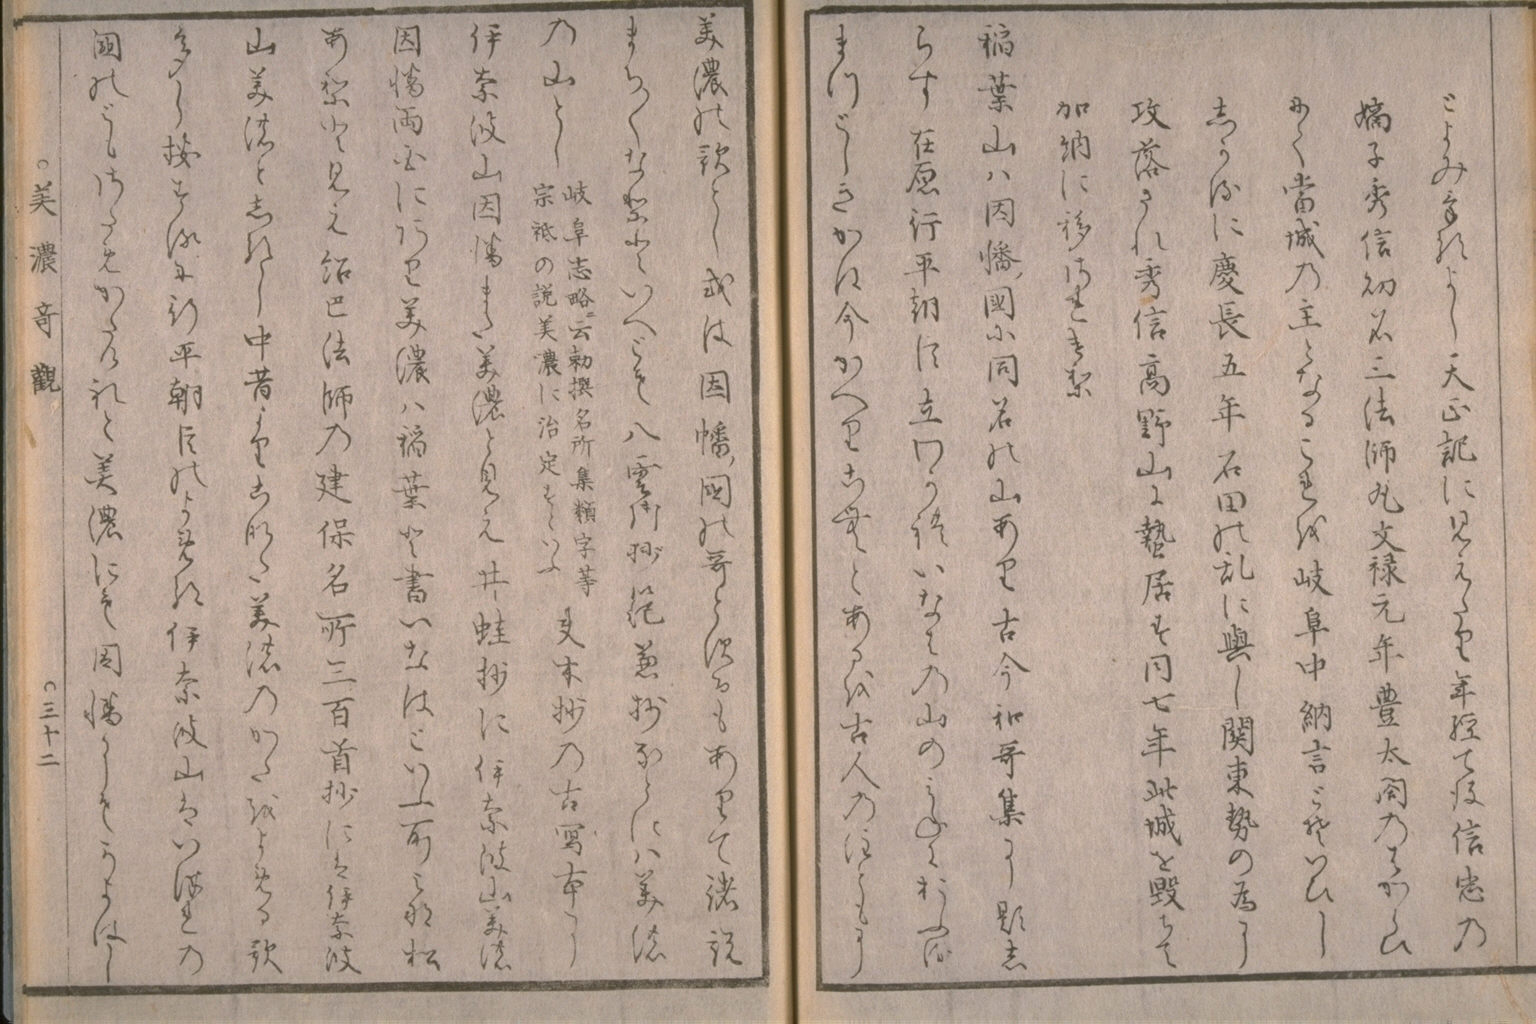 とよみ給ひし天正記に見えたり年経て後信忠の
嫡子秀信幼名三法師丸文禄元年豊太閤のはからひ
にて當城の主となるこれを岐阜中納言とぞいひし
しかるに慶長五年石田の乱に與し関東勢の為に
攻落され秀信高野山に蟄居す同七年此城を毀ちて
加納に移されけり
稲葉山ハ因幡國に同名の山あり古今和哥集に題し
らす在原行平朝臣立わかれいなはの山のみねにおふる
まつとしきかは今かへりこむとあるを古人の注にも
美濃の歌とし或は因幡國の哥とするもありて諸説
まちくなりといへとも八雲御抄範兼抄なとにハ美濃
の山とし
岐阜志略ニ云勅撰名所集類字等
宗祇の説美濃に治定すといふ
夫木抄の古写本に
伊奈波山因幡また美濃と見え井蛙抄に伊奈波山美濃
因幡両国にあり美濃ハ稲葉と書いなはといふ所之那松
ありと見え紹巴法師の建保名所三百首抄には伊奈波
山美濃としるし中昔よりこなた美濃のかたをよめる歌
多し按するに行平朝臣のよめる伊奈波山はいつれの
國の
美濃にも因幡にも
美濃奇觀
三十二